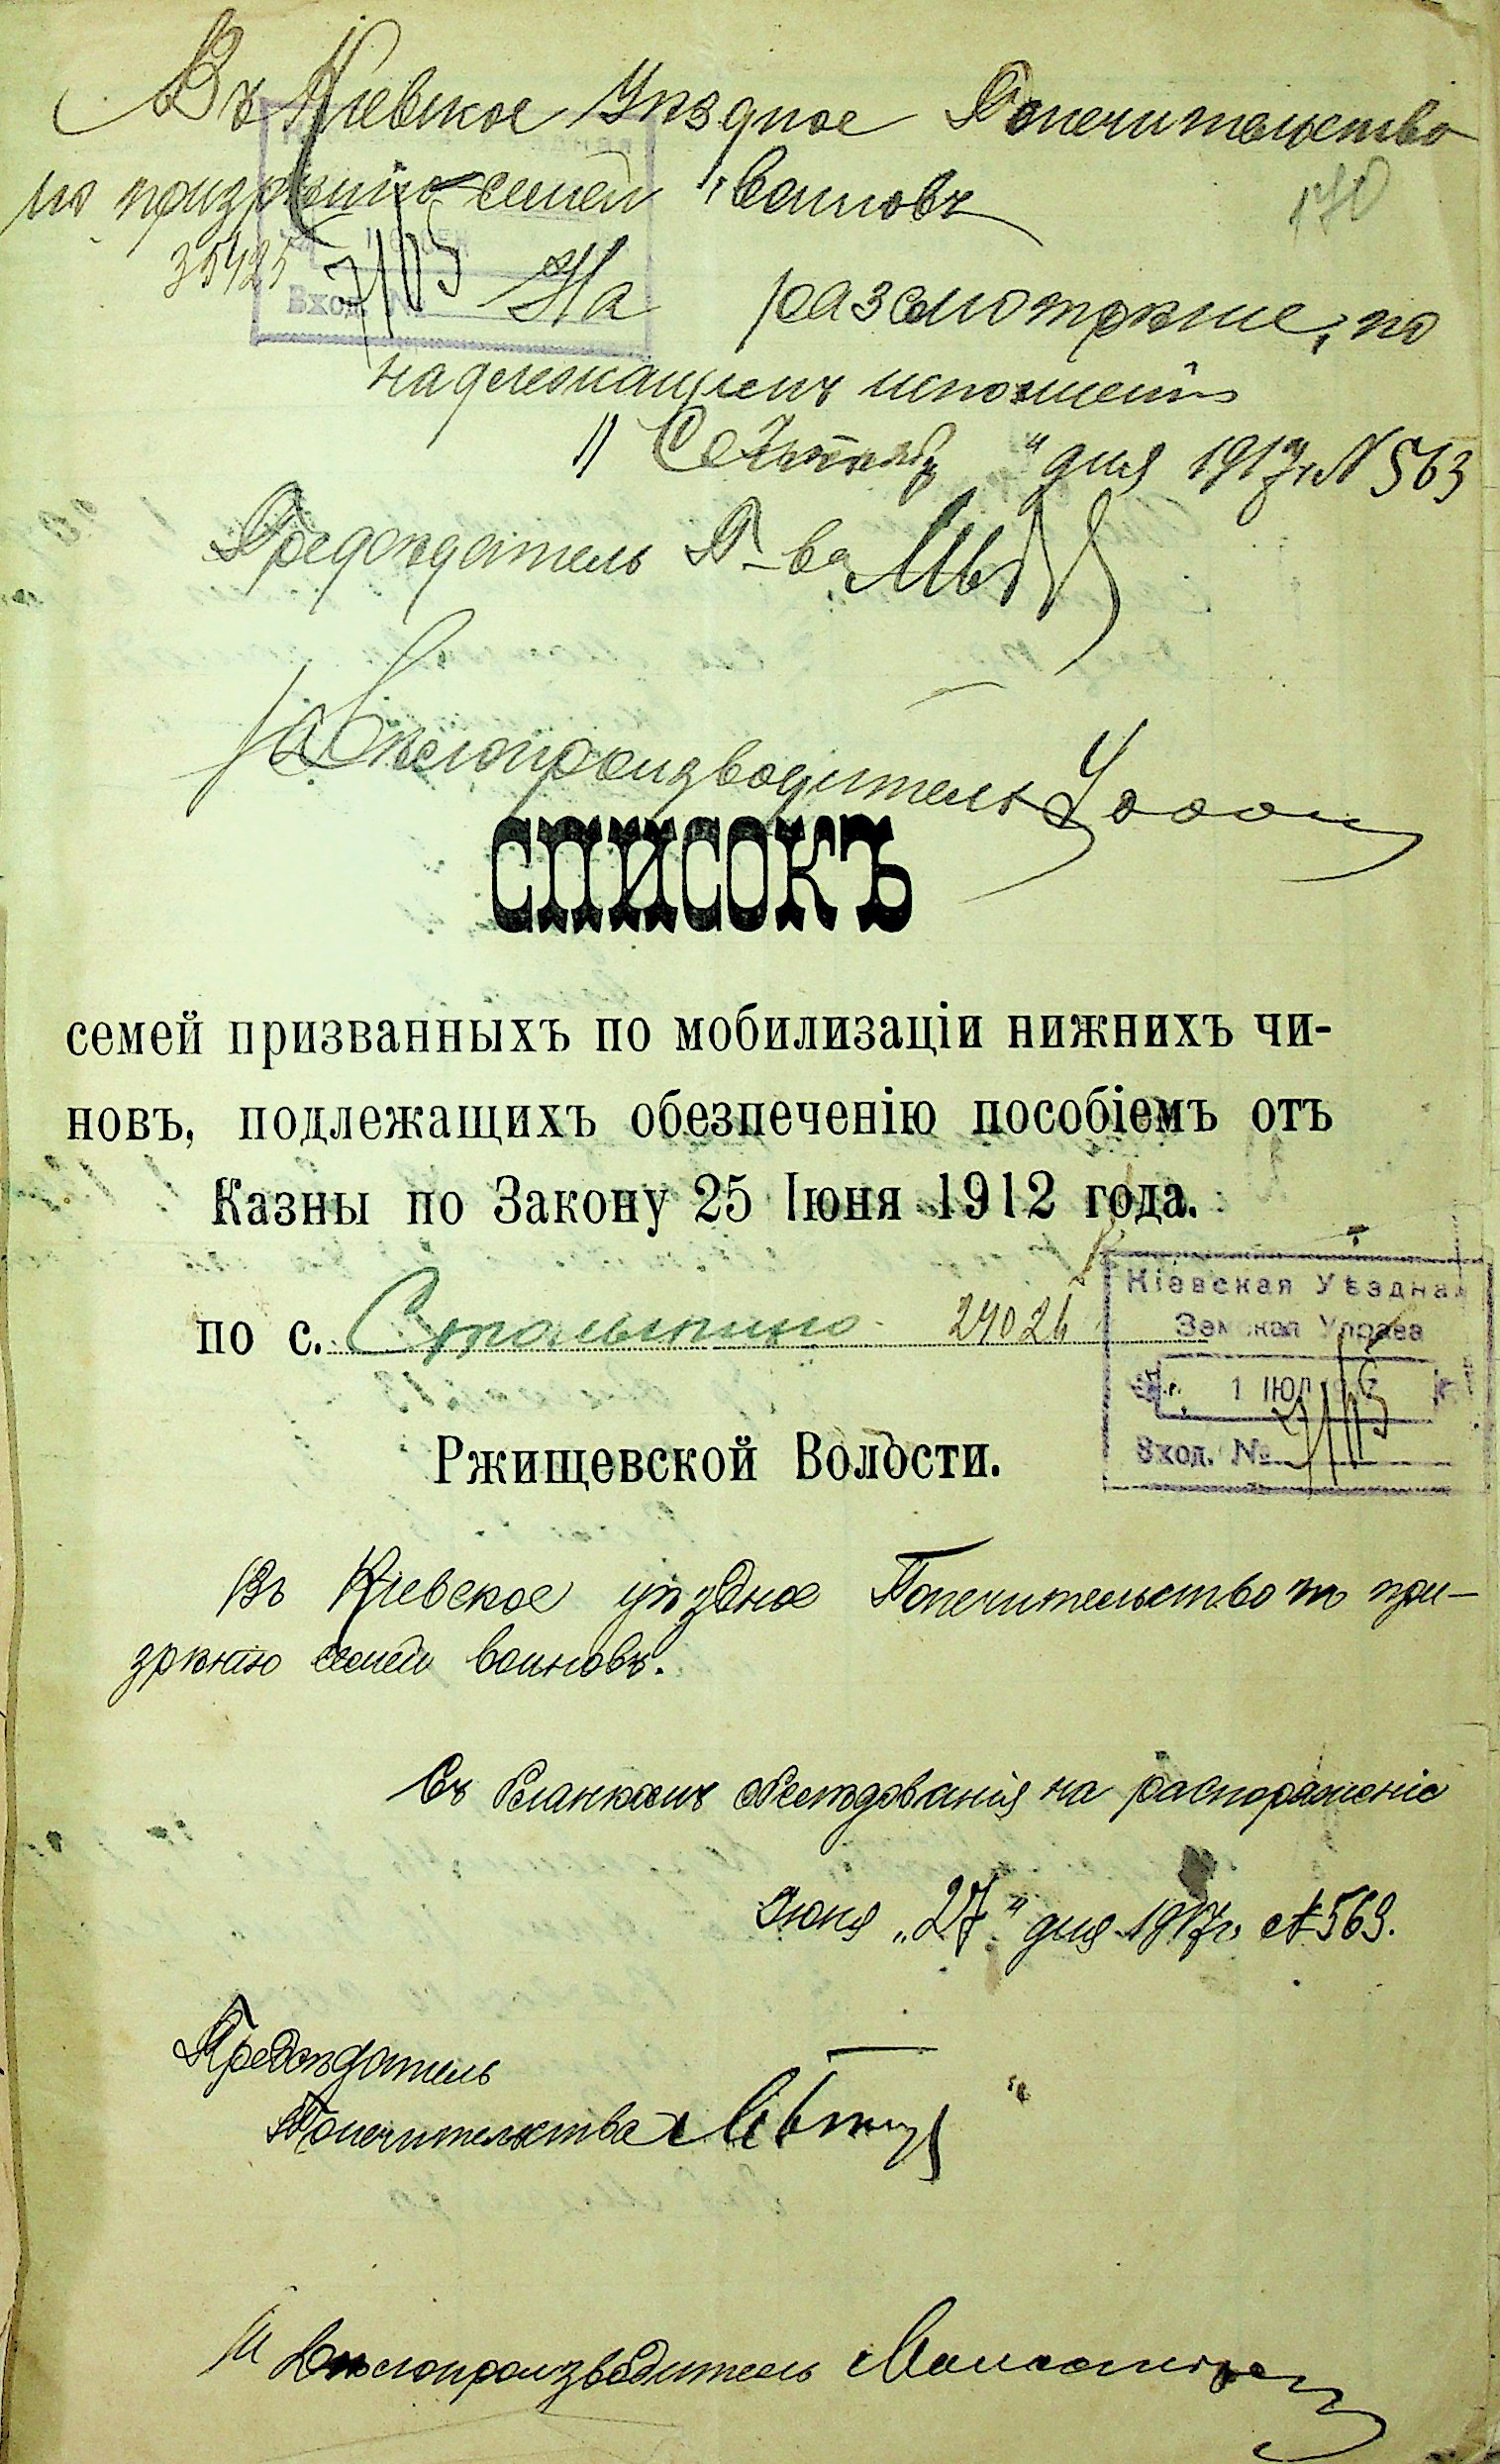 Въ Кіевское Уѣздное Попечительство
по призрѣнію семей воиновъ
170
35425 7/115 На разсмотрѣніе, по
Вход. №
надлежащемъ исполненіи
" Сентября " дня 1917 г. № 563
Предсѣдатель П-ва
Дѣлопроизводитель
СПИСОКЪ
семей призванныхъ по мобилизаціи нижнихъ чи-
новъ, подлежащихъ обезпеченію пособіемъ отъ
Казны по Закону 25 Іюня 1912 года.
Кіевская Уѣздная
Земская Управа
по с. 24026
1 ІЮЛ
Вход. №
Ржищевской Волости.
Въ Кіевское уѣздное Попечительство по при-
зрѣнію семей воиновъ.
Съ бланкомъ обслѣдованія на распоряженіе
Іюня „27" дня 1917 г. № 569.
Предсѣдатель
Попечительства
Дѣлопроизводитель